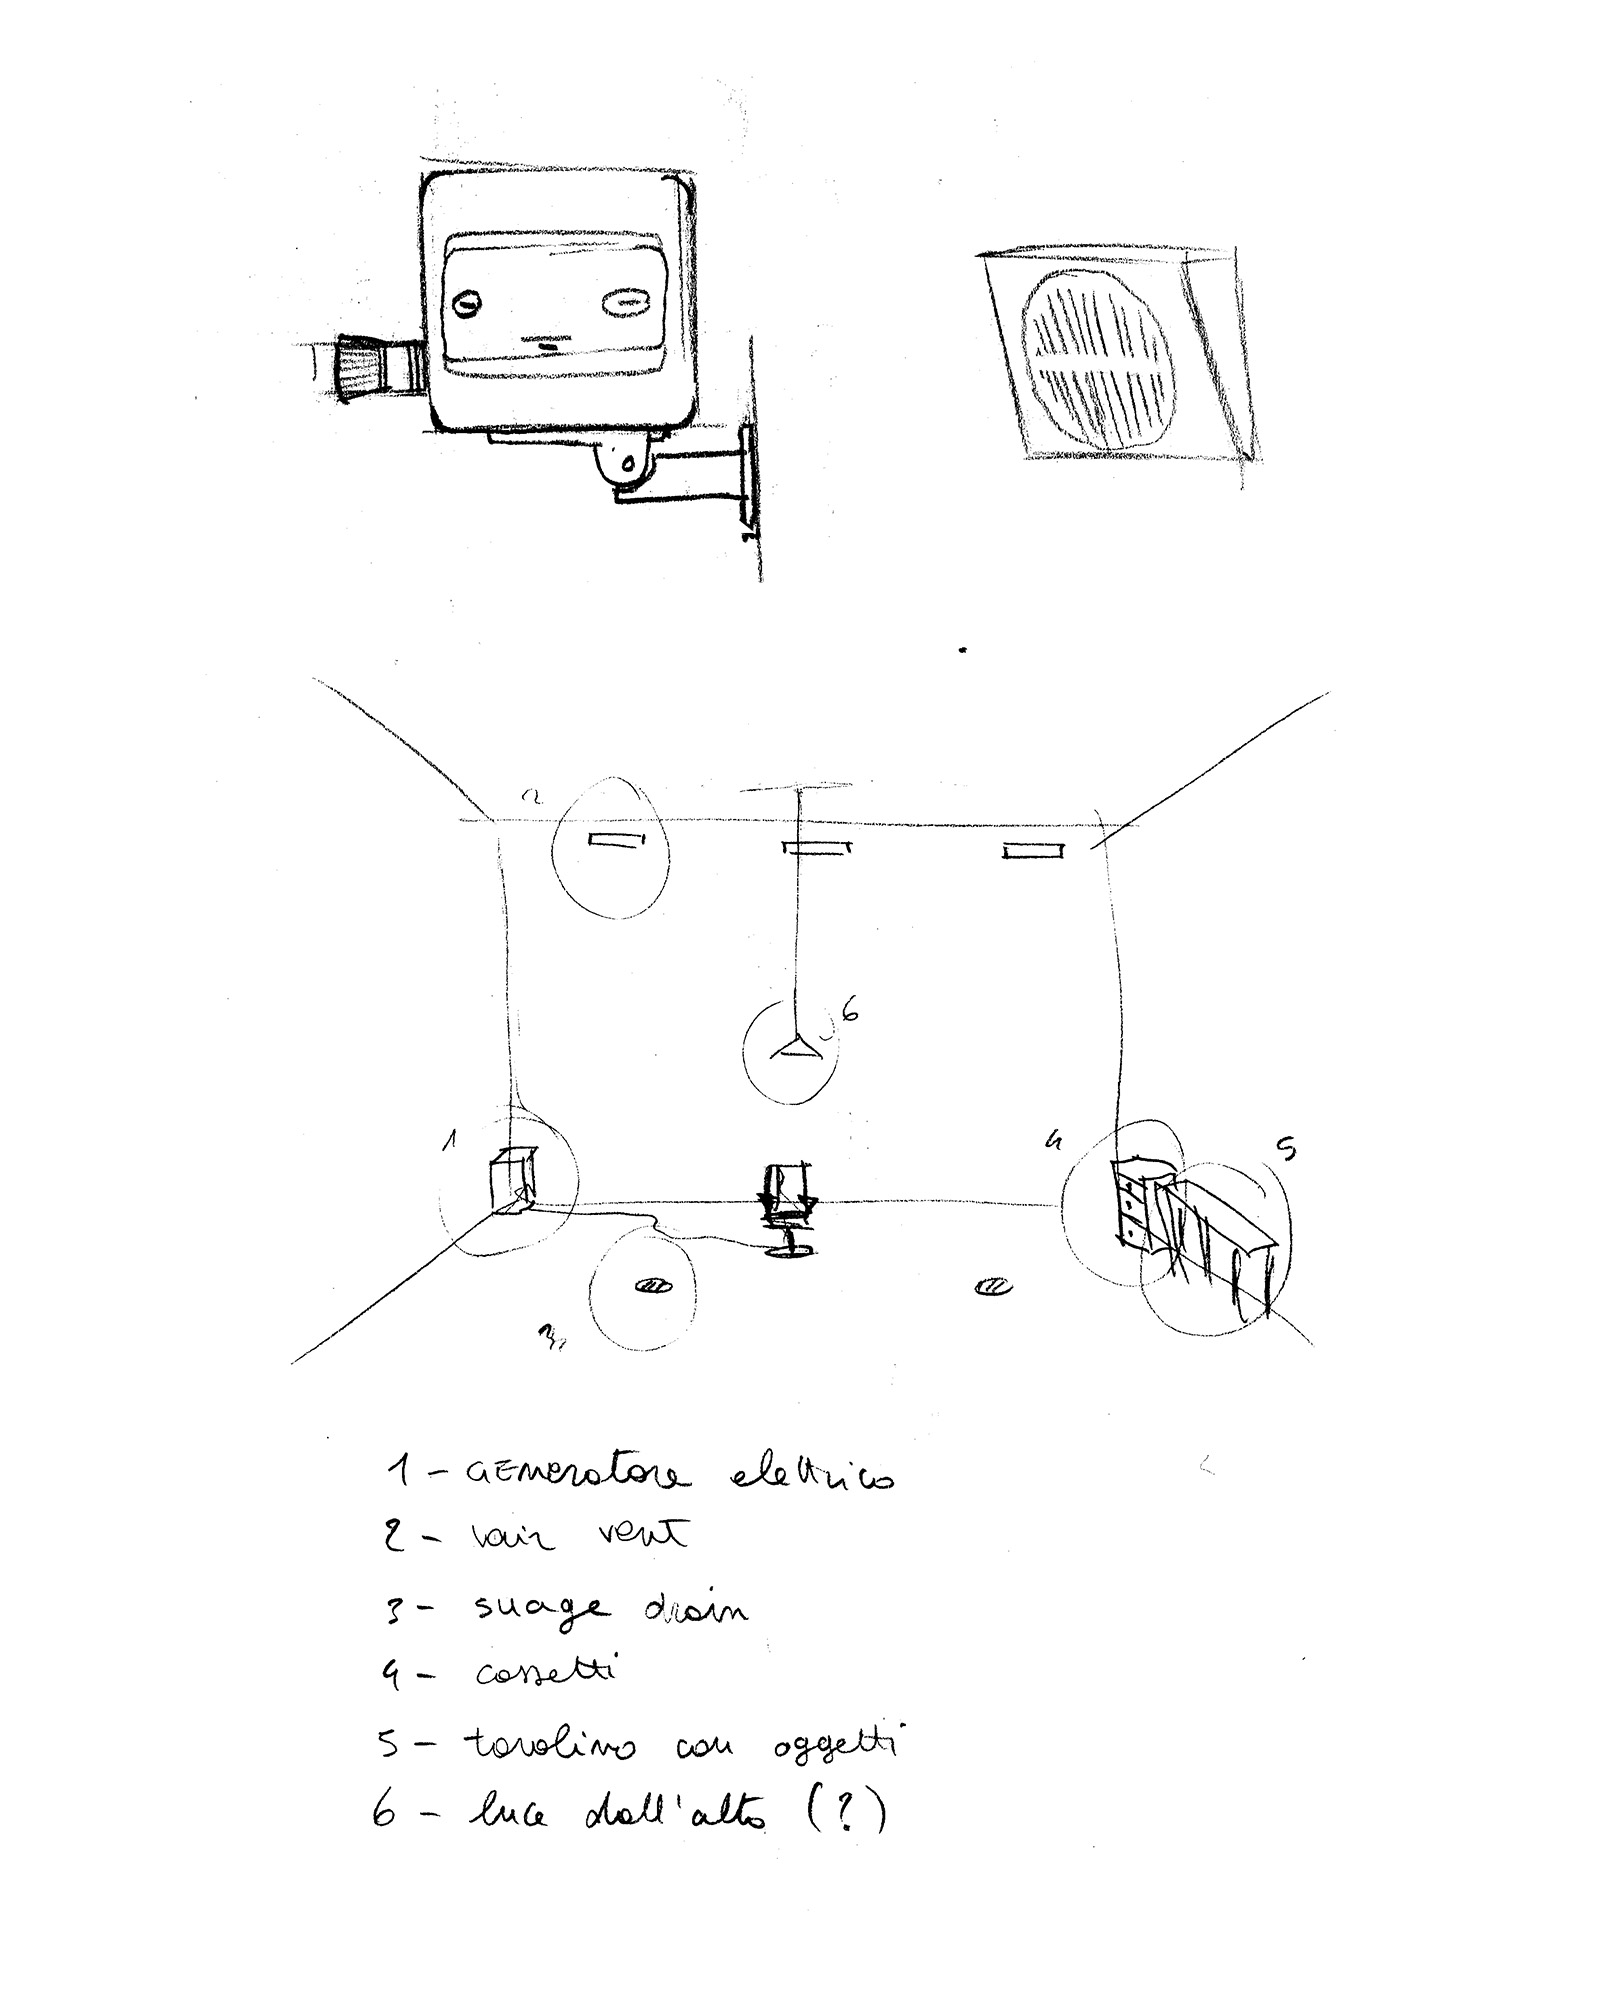 2
6
1
4
5
3
1 - GENERATORE elettrico
2 - vair vent
3 - suage drain
4 - cassetti
5 - tavolino con oggetti
6 - luce dall'alto (?)